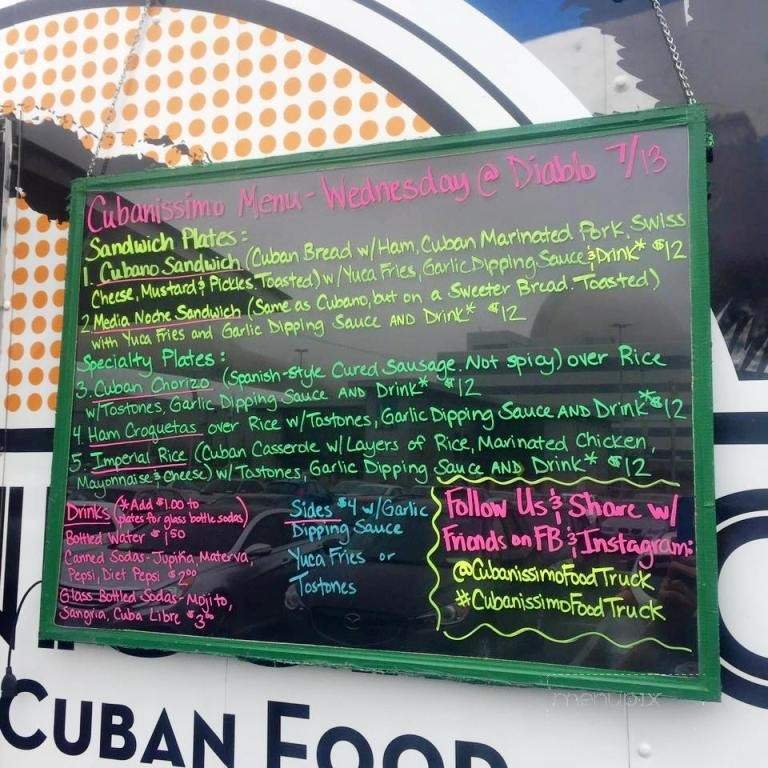 Cubanissimo Menu - Wednesday @ Diablo 7/13
Sandwich Plates:
1. Cubano Sandwich (Cuban Bread w/Ham, Cuban Marinated Pork, Swiss
Cheese, Mustard & Pickles. Toasted) w/Yuca Fries, Garlic Dipping Sauce & Drink* $12
2. Media Noche Sandwich (Same as Cubano, but on a Sweeter Bread. Toasted)
with Yuca Fries and Garlic Dipping Sauce AND Drink* $12
Specialty Plates:
3. Cuban Chorizo (Spanish-style Cured Sausage. Not spicy) over Rice
w/Tostones, Garlic Dipping Sauce AND Drink* $12
4. Ham Croquetas over Rice w/Tostones, Garlic Dipping Sauce AND Drink* $12
5. Imperial Rice (Cuban Casserole w/Layers of Rice, Marinated Chicken,
Mayonnaise & Cheese) w/Tostones, Garlic Dipping Sauce AND Drink* $12
Drinks (*Add $1.00 to
plates for glass bottle sodas)
Bottled Water $1.50
Canned Sodas - Jupiña, Materva,
Pepsi, Diet Pepsi $2.00
Glass Bottled Sodas - Mojito,
Sangria, Cuba Libre $3
Sides $4 w/Garlic
Dipping Sauce
Yuca Fries or
Tostones
Follow Us & Share w/
Friends on FB & Instagram:
@CubanissimoFoodTruck
#CubanissimoFoodTruck
menupix
CUBAN FOOD